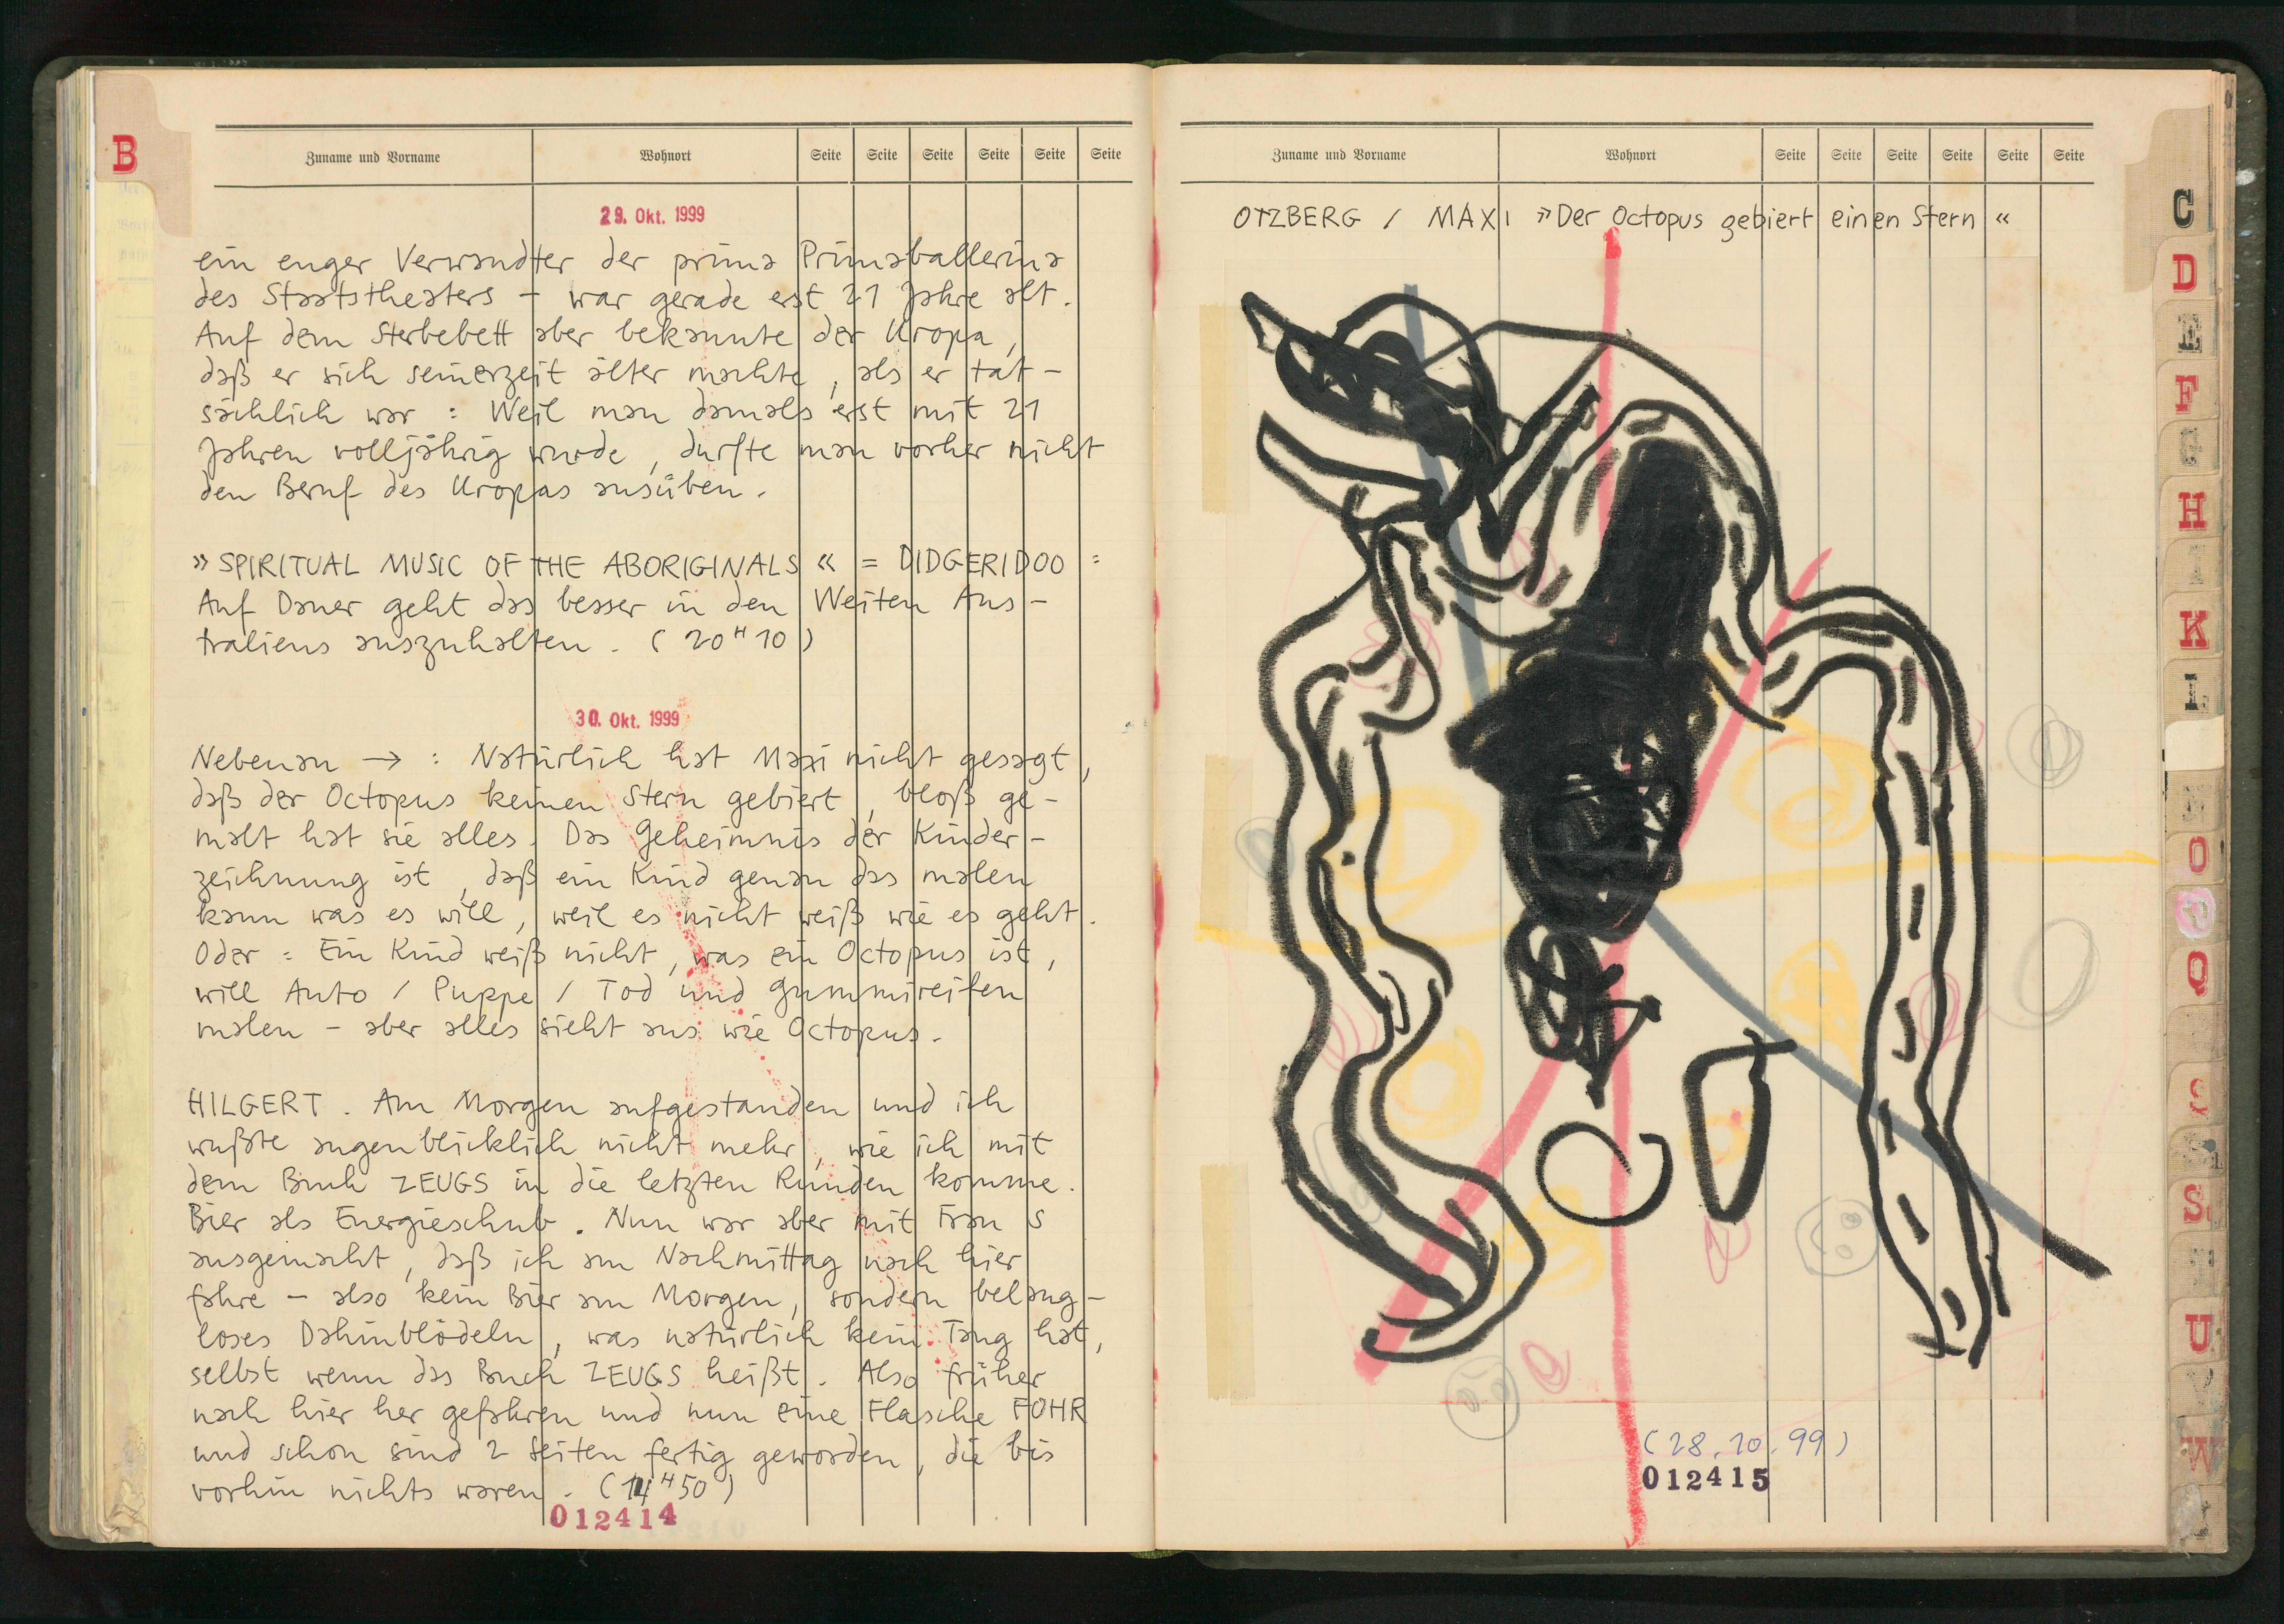 B
Zuname und Vorname Wohnort Seite Seite Seite Seite Seite Seite
29. Okt. 1999
ein enger Verwandter der prima Primaballerina
des Staatstheaters – war gerade erst 21 Jahre alt.
Auf dem Sterbebett aber bekannte der Uropa,
daß er sich seinerzeit älter machte, als er tat-
sächlich war : Weil man damals erst mit 21
Jahren volljährig wurde, durfte man vorher nicht
den Beruf des Uropas ausüben.
» SPIRITUAL MUSIC OF THE ABORIGINALS « = DIDGERIDOO :
Auf Dauer geht das besser in den Weiten Aus-
traliens auszuhalten. (20 H 10)
30. Okt. 1999
Nebenan → : Natürlich hat Maxi nicht gesagt,
daß der Octopus keinen Stern gebiert, bloß ge-
malt hat sie alles. Das Geheimnis der Kinder-
zeichnung ist, daß ein Kind genau das malen
kann was es will, weil es nicht weiß wie es geht.
Oder : Ein Kind weiß nicht, was ein Octopus ist,
will Auto / Puppe / Tod und Gummireifen
malen – aber alles sieht aus wie Octopus.
HILGERT. Am Morgen aufgestanden und ich
wußte augenblicklich nicht mehr, wie ich mit
dem Buch ZEUGS in die letzten Runden komme.
Bier als Energieschub. Nun war aber mit Frau S
ausgemacht, daß ich am Nachmittag nach hier
fahre – also kein Bier am Morgen, sondern belang-
loses Dahinblödeln, was natürlich kein Tang hat,
selbst wenn das Buch ZEUGS heißt. Also früher
nach hier her gefahren und nun eine Flasche FOHR
und schon sind 2 Seiten fertig geworden, die bis
vorhin nichts waren. (14 H 50)
012414
Zuname und Vorname Wohnort Seite Seite Seite Seite Seite Seite
OTZBERG / MAXI » Der Octopus gebiert einen Stern «
(28.10.99)
012415
C
D
E
F
G
H
I
K
L
O
P
Q
S
U
V
W